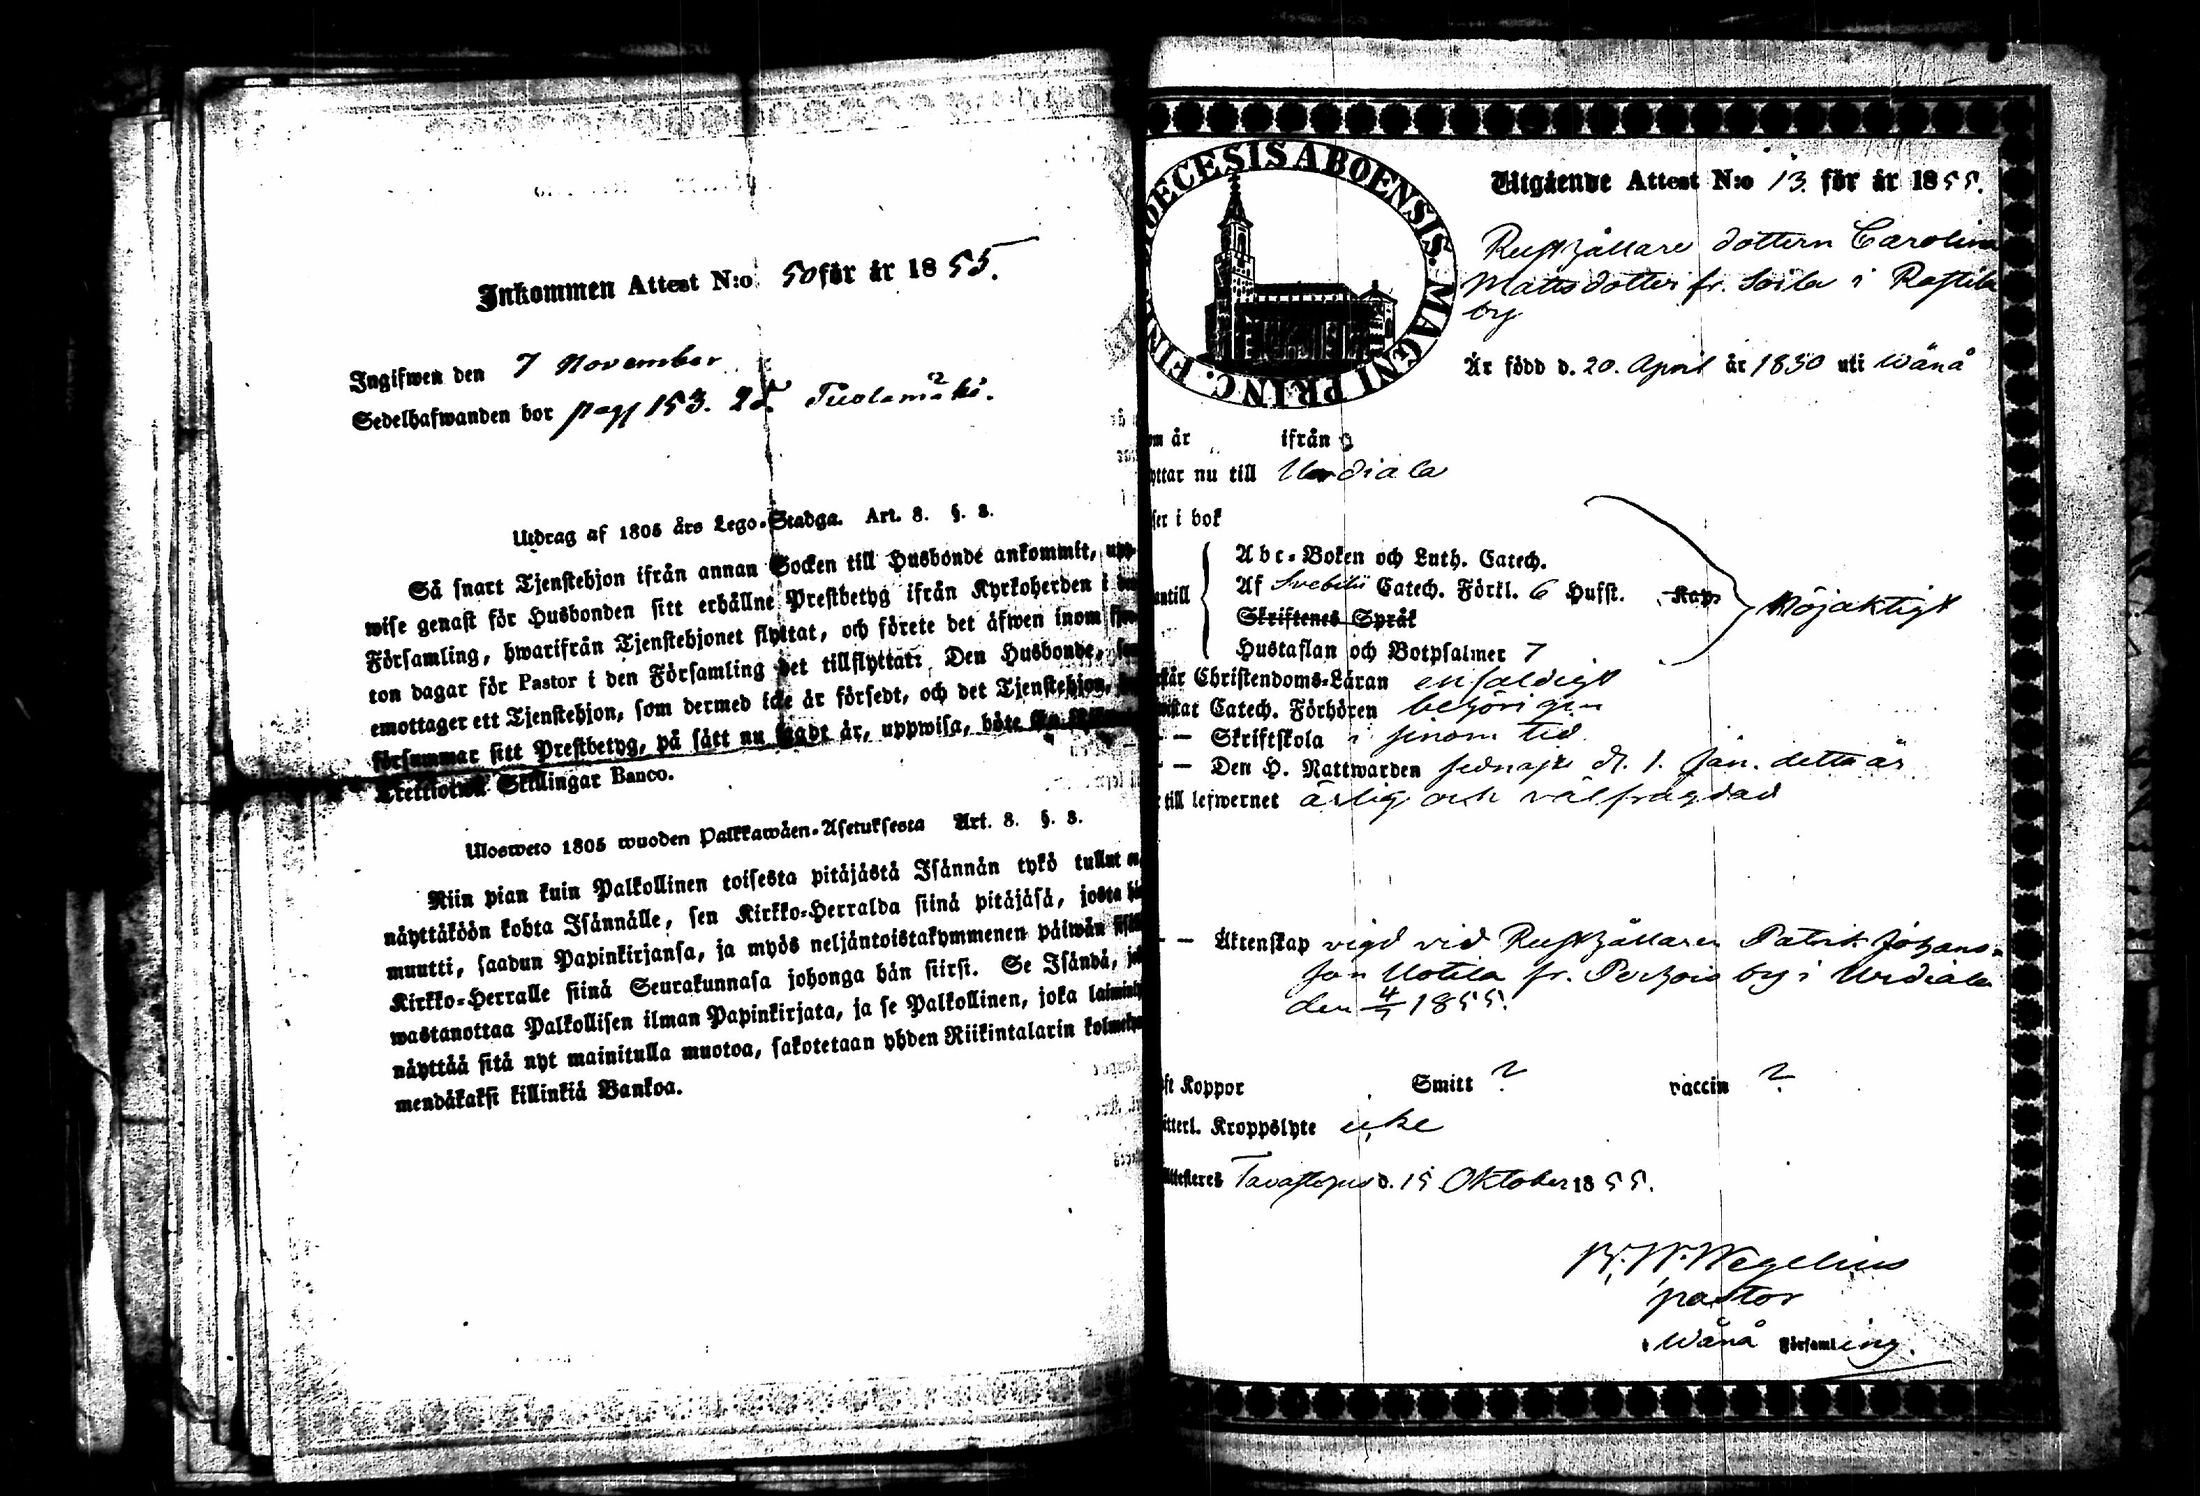 Inkommen Attest N:o 50 för år 1855.
Ingifwen den 7 November
Sedelhafwanden bor pag 153. Tuolamäki.
Utdrag af 1805 års Lego-Stadga. Art. 8. §. 3.
Så snart Tjenstehjon ifrån annan Socken till Husbonde ankommit, upp-
wise genast för Husbonden sitt erhållne Prestbetyg ifrån Kyrkoherden i den
Församling, hwarifrån Tjenstehjonet flyttat, och förete det äfwen inom fjor-
ton dagar för Pastor i den Församling det tillflyttat: Den Husbonde, som
emottager ett Tjenstehjon, som dermed icke är försedt, och det Tjenstehjon,
försummar sitt Prestbetyg, på sätt nu sagdt är, uppwisa, böte
Trettiotwå Skillingar Banco.
Ulosweto 1805 wuoden Palkkawäen-Asetuksesta Art. 8. §. 3.
Niin pian kuin Palkollinen toisesta pitäjästä Isännän tykö tullut on,
näyttäköön kohta Isännälle, sen Kirkko-Herralda siinä pitäjäsä, josta hän
muutti, saadun Papinkirjansa, ja myös neljäntoistakymmenen päiwän sisällä
Kirkko-Herralle siinä Seurakunnasa johonga hän siirsi. Se Isändä, joka
wastanottaa Palkollisen ilman Papinkirjata, ja se Palkollinen, joka laiminlyö
näyttää sitä nyt mainitulla muotoa, sakotetaan yhden Riikintalarin kolmekym-
mendäkaksi killinkiä Bankoa.
DIOECESIS ABOENSIS. MAGNI PRINC. FIN
Utgående Attest N:o 13 för år 1855.
Rusthållare dottern Carolina
Mattsdotter fr. Soila i Rastila
by
Är född d. 20. April år 1830 uti Wånå
om år ifrån
yttar nu till Urdiala
ser i bok
Abc-Boken och Luth. Catech.
Af Svebilii Catech. Förkl. 6 Hufst. Kap
antill
Nöjaktigt
Skriftenes Språk
Hustaflan och Botpsalmer 7
står Christendoms-Läran enfaldigt
wistat Catech. Förhören behörigen
— — Skriftskola i sinom tid
— — Den H. Nattwarden sednast d. 1. Jan. detta år
till lefwernet ärlig och välfrägdad
— — Äktenskap vigd vid Rusthållaren Patrik Johans-
son Uotila fr. Perhois by i Urdiala
den 4/7 1855.
ft Koppor Smitt ? vaccin ?
itterl. Kroppslyte icke
Attesteres Tavastehus d. 15 Oktober 1855.
Wegelius
pastor
i Wånå Församling.